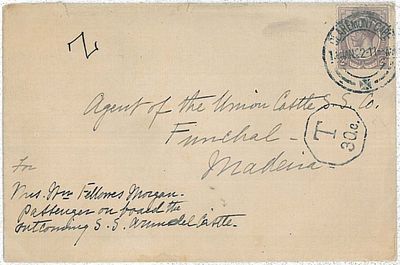 2
CLAREMONT
Agent of the Union Castle S.S. Co.
Funchal -
Madeira
T
30c.
For
Mrs. Wm Fellowes Morgan -
passenger on board the
outcoming S.S. Arundel Castle -